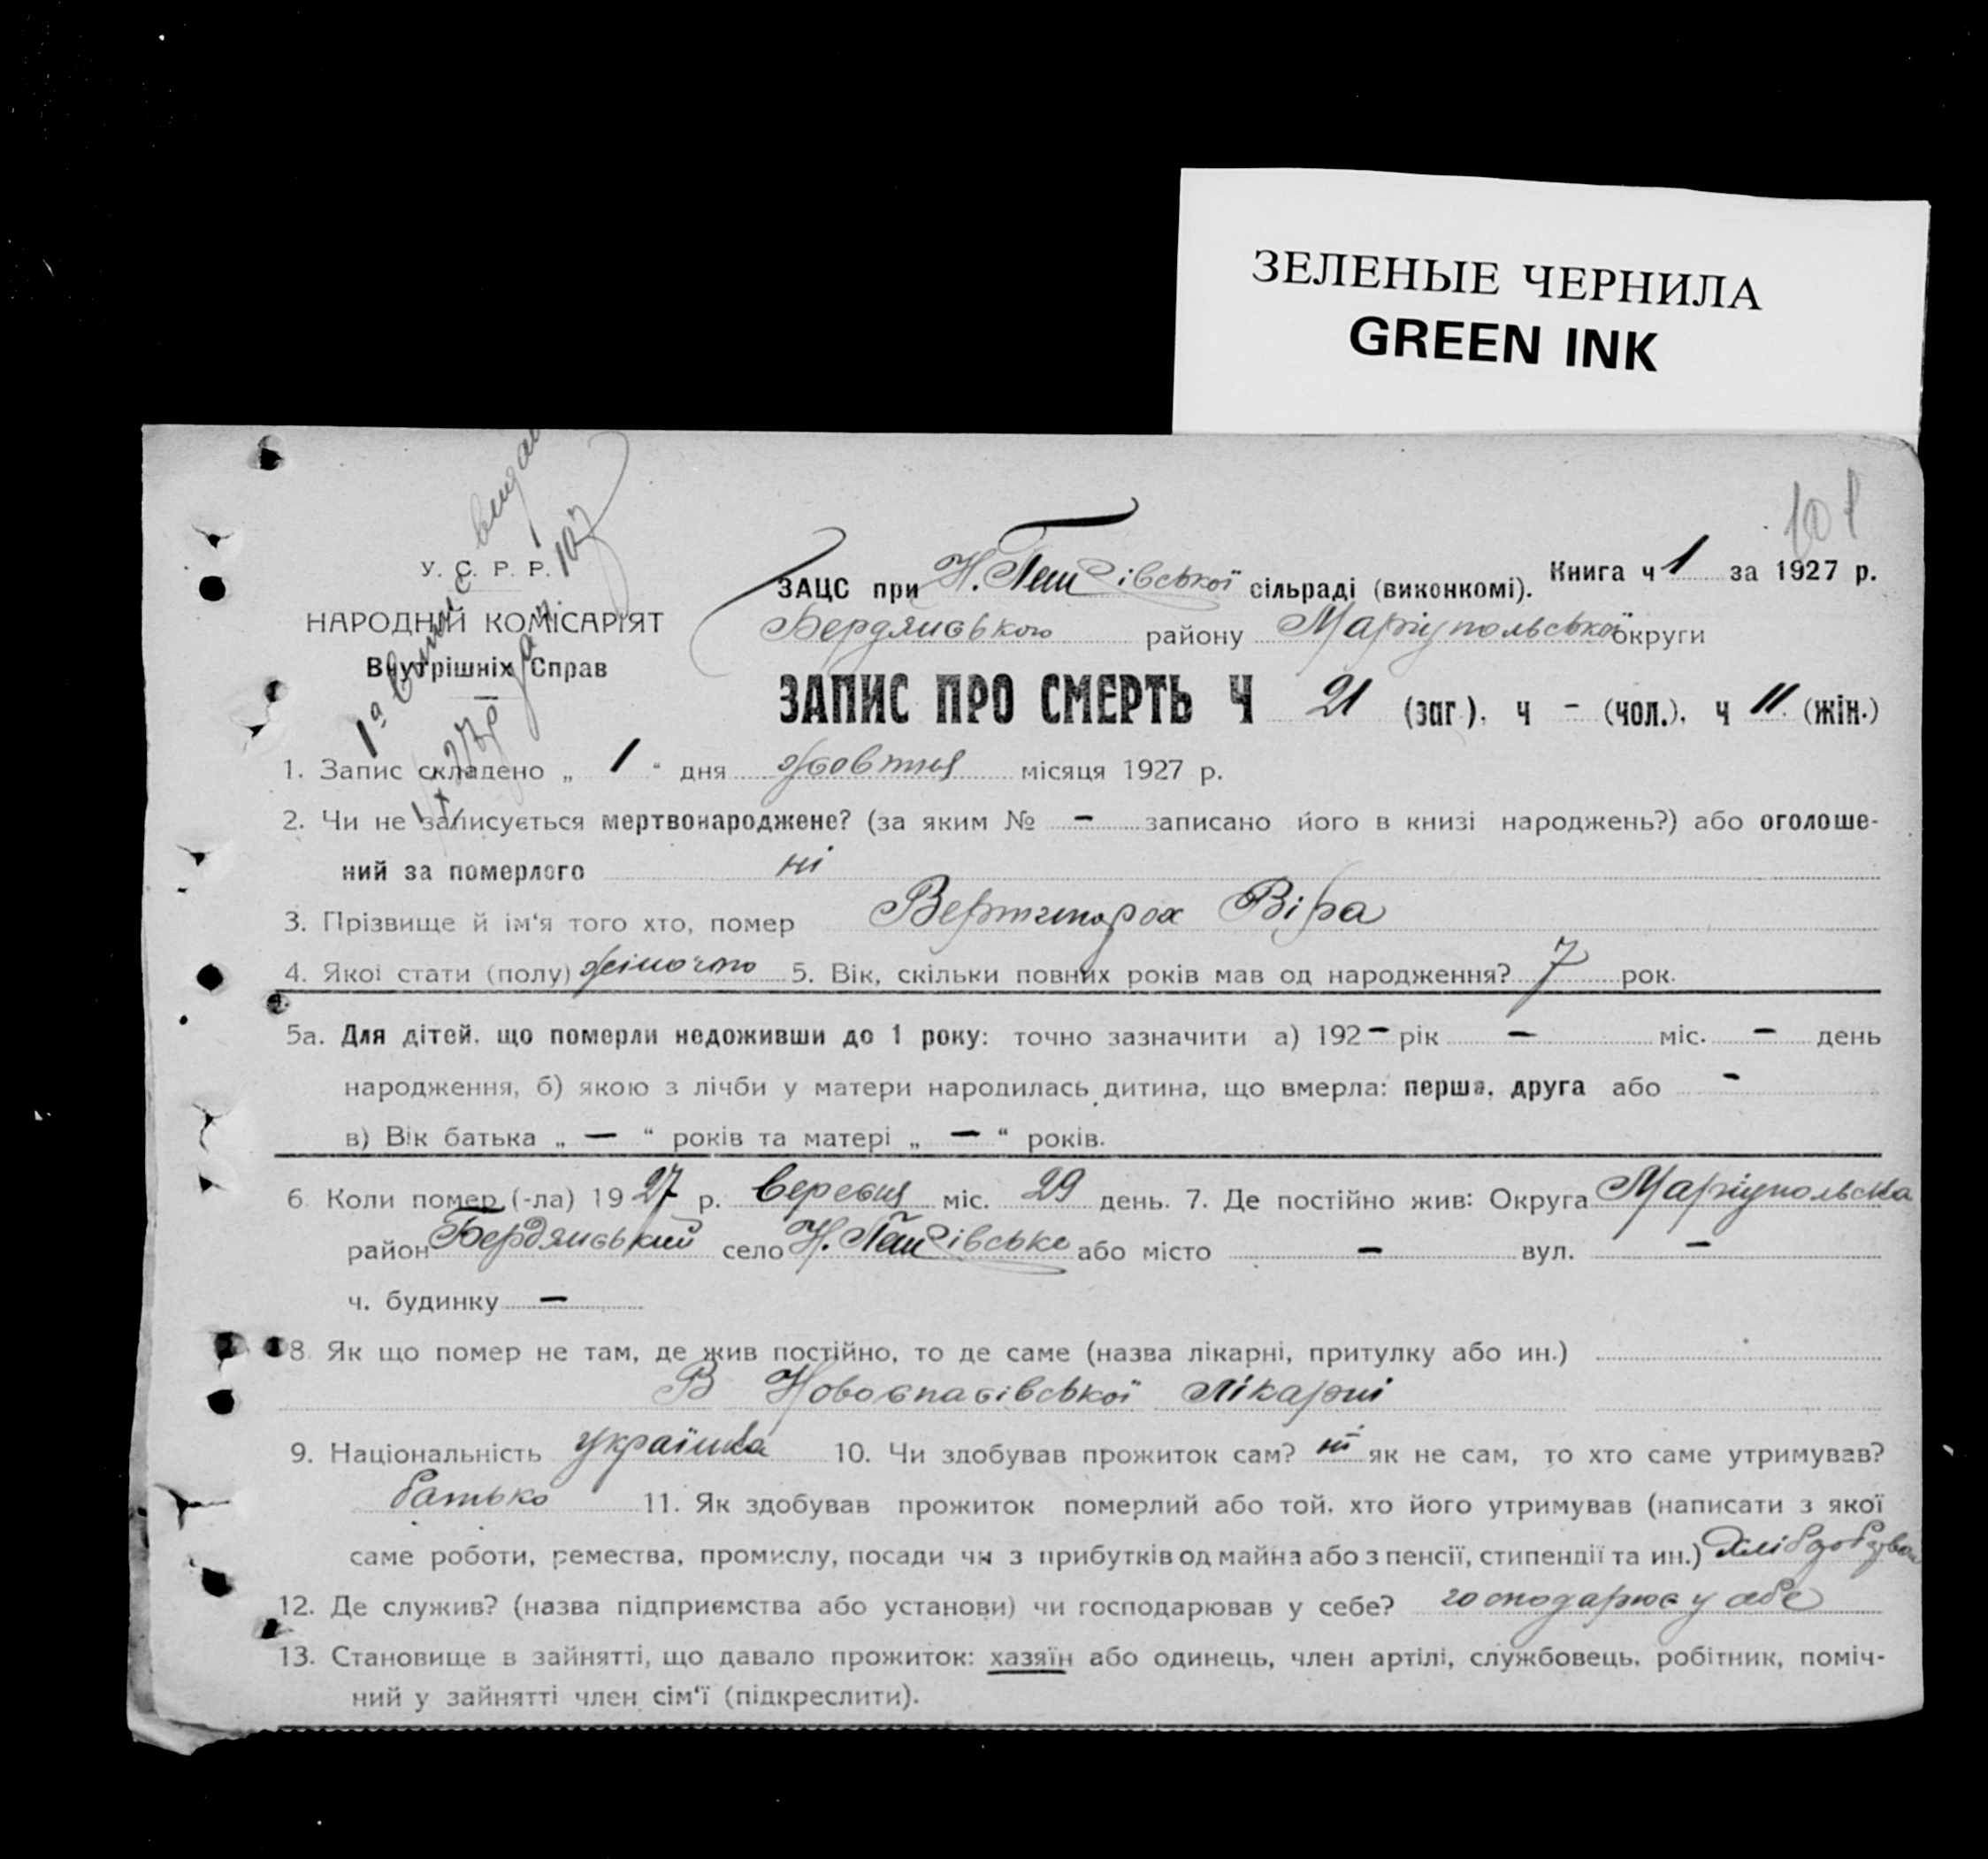 ЗЕЛЕНЫЕ ЧЕРНИЛА
GREEN INK
101
У. С. Р. Р.
НАРОДНІЙ КОМІСАРІЯТ
Внутрішніх Справ
ЗАЦС при Н. сільраді (виконкомі). Книга ч 1 за 1927 р.
Бердянського району Маріупольської округи
ЗАПИС ПРО СМЕРТЬ Ч 21 (заг.), ч - (чол.), ч 11 (жін.)
1. Запис складено „ 1 " дня жовтня місяця 1927 р.
2. Чи не записується мертвонароджене? (за яким № — записано його в книзі народжень?) або оголоше-
ний за померлого ні
3. Прізвище й ім'я того хто, помер Вертипорох Віра
4. Якої стати (полу) жіночого 5. Вік, скільки повних років мав од народження? 7 рок.
5а. Для дітей, що померли недоживши до 1 року: точно зазначити а) 192— рік — міс. — день
народження, б) якою з лічби у матери народилась дитина, що вмерла: перша, друга або —
в) Вік батька „ — " років та матері „ — " років.
6. Коли помер (-ла) 1927 р. вересня міс. 29 день. 7. Де постійно жив: Округа Маріупольська
район Бердянський село Н. або місто — вул. —
ч. будинку —
8. Як що помер не там, де жив постійно, то де саме (назва лікарні, притулку або ин.)
В Новоспасівської лікарні
9. Національність українка 10. Чи здобував прожиток сам? ні як не сам, то хто саме утримував?
батько 11. Як здобував прожиток померлий або той, хто його утримував (написати з якої
саме роботи, ремества, промислу, посади чи з прибутків од майна або з пенсії, стипендії та ин.) хлібороб
12. Де служив? (назва підприємства або установи) чи господарював у себе? господарює у себе
13. Становище в зайнятті, що давало прожиток: хазяїн або одинець, член артілі, службовець, робітник, поміч-
ний у зайнятті член сім'ї (підкреслити).